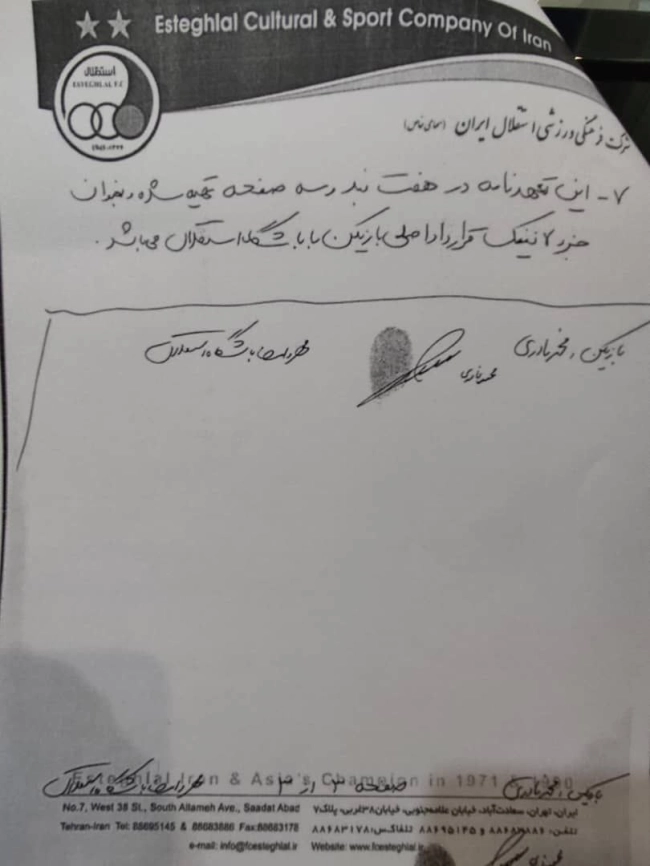 Esteghlal Cultural & Sport Company Of Iran
استقلال
ESTEGHLAL F.C
شرکت فرهنگی ورزشی استقلال ایران (سهامی خاص)
۷- این تعهدنامه در هفت بند و سه صفحه تهیه شده و بعنوان
جزء لاینفک قرارداد اصلی بازیکن با باشگاه استقلال می‌باشد.
بازیکن: محمد نادری
محمد نادری
مهر و امضاء باشگاه استقلال
Esteghlal Iran & Asia's Champion in 1971 & 1990
بازیکن: محمد نادری
صفحه ۳ از ۳
مهر و امضاء باشگاه استقلال
No.7, West 38 St., South Allameh Ave., Saadat Abad
ایران، تهران، سعادت‌آباد، خیابان علامه جنوبی، خیابان ۳۸ غربی، پلاک ۷
Tehran-Iran Tel: 88695145 & 88683886 Fax:88683178
تلفن: ۸۸۶۸۳۸۸۶ و ۸۸۶۹۵۱۴۵ تلفاکس: ۸۸۶۸۳۱۷۸
e-mail: info@fcesteghlal.ir Website: www.fcesteghlal.ir